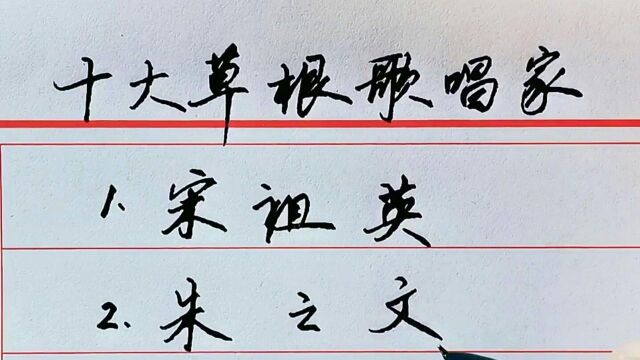 十大草根歌唱家
1. 宋祖英
2. 朱之文